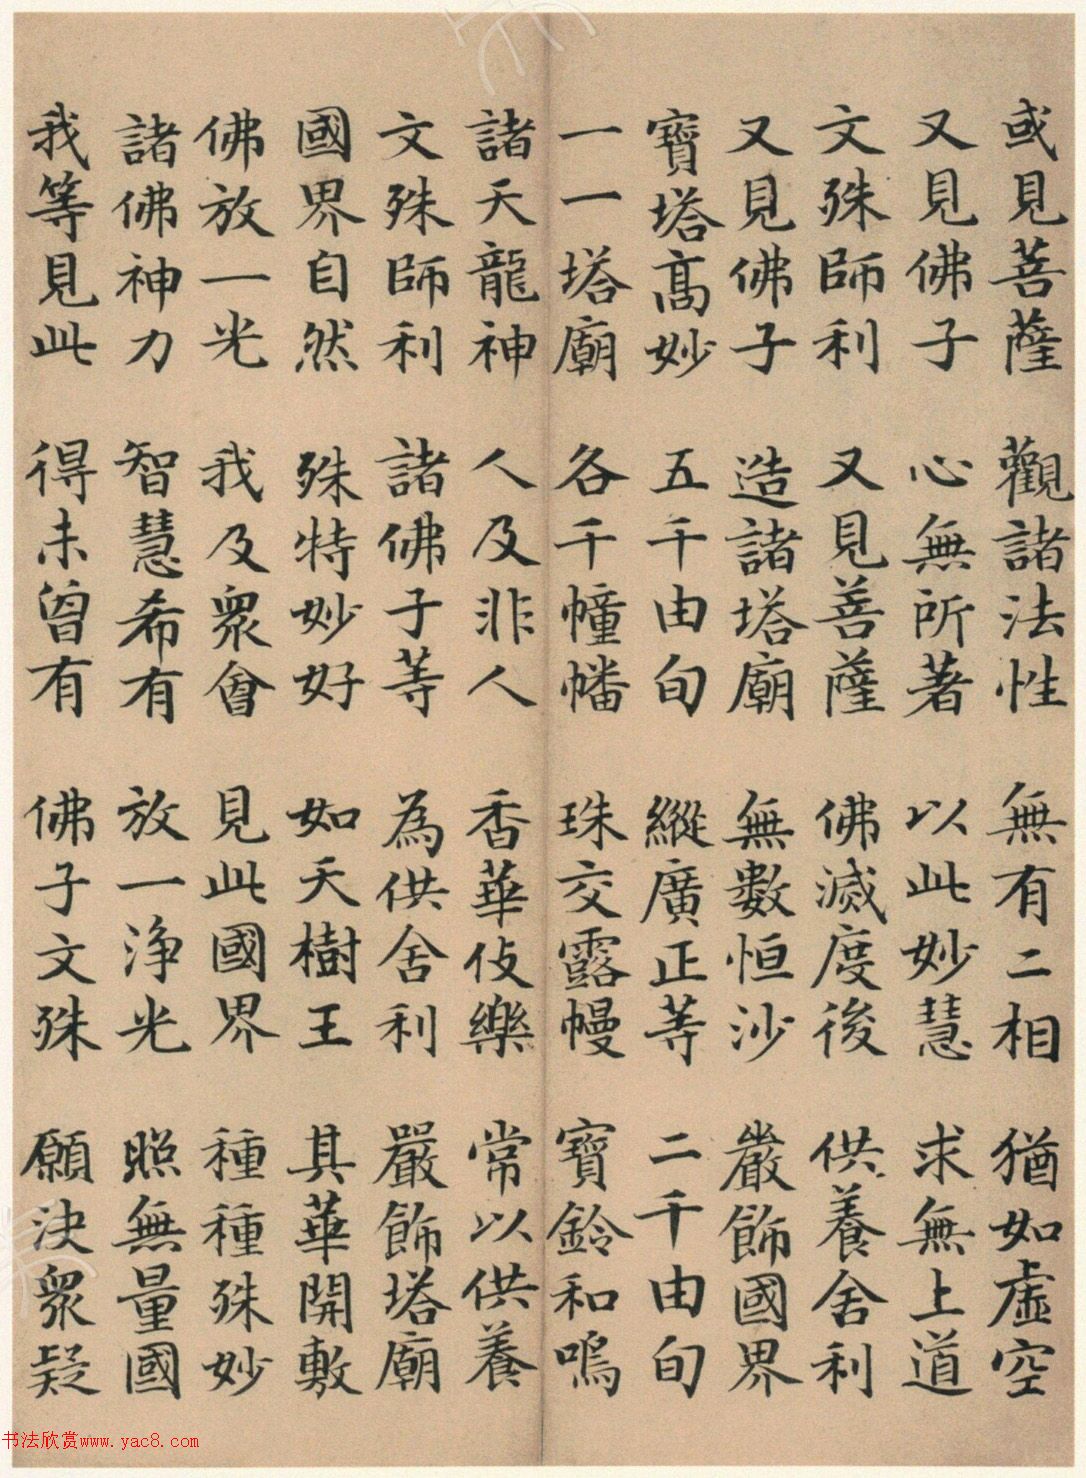 或見菩薩 觀諸法性 無有二相 猶如虛空
又見佛子 心無所著 以此妙慧 求無上道
文殊師利 又見菩薩 佛滅度後 供養舍利
又見佛子 造諸塔廟 無數恒沙 嚴飾國界
寶塔高妙 五千由旬 縱廣正等 二千由旬
一一塔廟 各千幢幡 珠交露幔 寶鈴和鳴
諸天龍神 人及非人 香華伎樂 常以供養
文殊師利 諸佛子等 為供舍利 嚴飾塔廟
國界自然 殊特妙好 如天樹王 其華開敷
佛放一光 我及眾會 見此國界 種種殊妙
諸佛神力 智慧希有 放一淨光 照無量國
我等見此 得未曾有 佛子文殊 願決眾疑
书法欣赏www.yac8.com